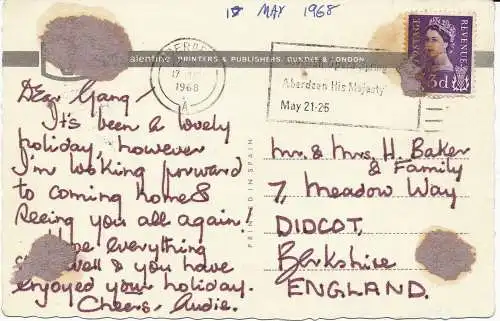 17 MAY 1968
Valentine PRINTERS & PUBLISHERS, DUNDEE & LONDON
POSTAGE
REVENUE
3d
17
1968
A
Aberdeen His Majesty
May 21-26
PRINTED IN SPAIN
Dear Gang -
It's been a lovely
holiday, however
I'm looking forward
to coming home &
seeing you all again!
everything
well & you have
enjoyed your holiday.
Cheers - Audie.
Mr. & Mrs H. Baker
& Family
7, Meadow Way
DIDCOT,
Berkshire
ENGLAND.